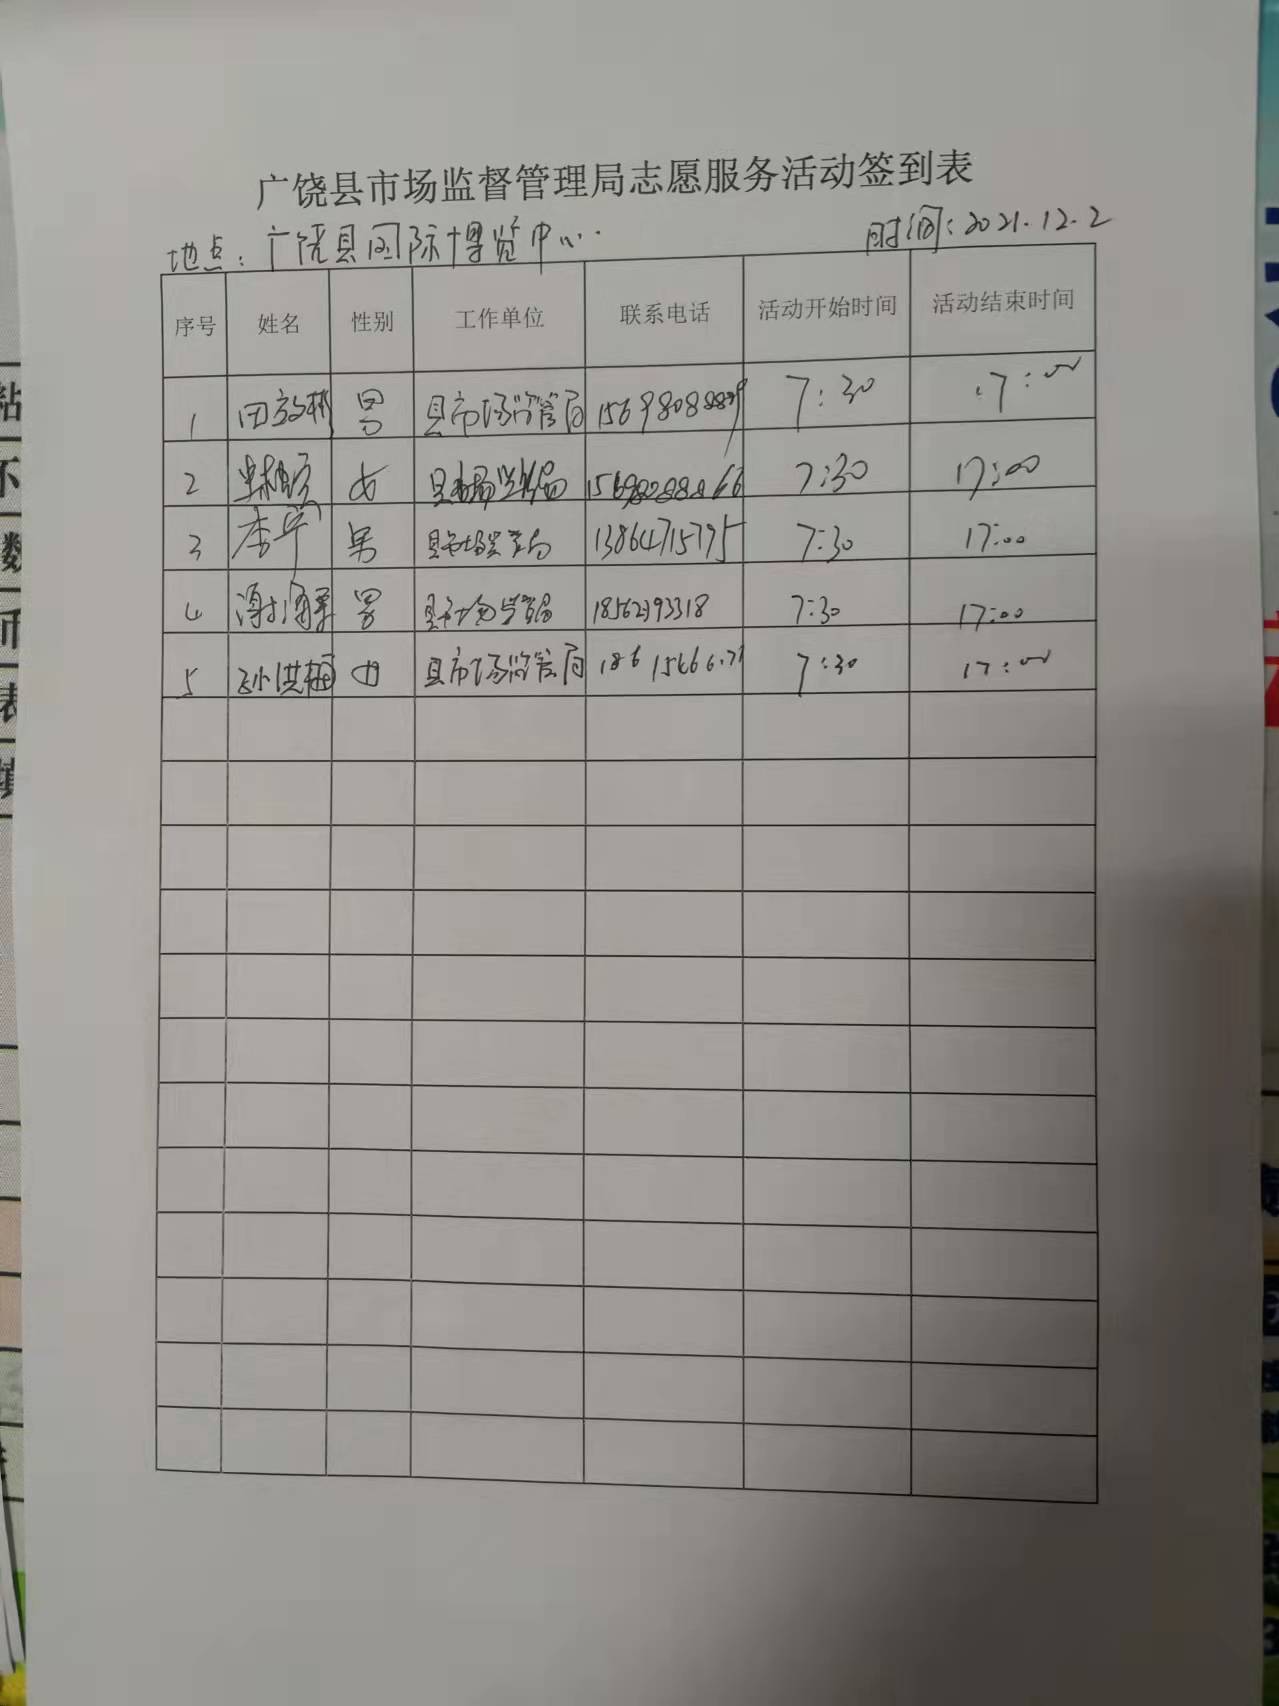 广饶县市场监督管理局志愿服务活动签到表
地点：广饶县国际博览中心 时间：2021.12.2
序号 姓名 性别 工作单位 联系电话 活动开始时间 活动结束时间
1 男 县市场监管局 7:30 17:00
2 女 县市场监管局 7:30 17:00
3 李宁 男 县市场监管局 13864715775 7:30 17:00
4 男 县市场监管局 18562193318 7:30 17:00
5 孙洪梅 女 县市场监管局 7:30 17:00